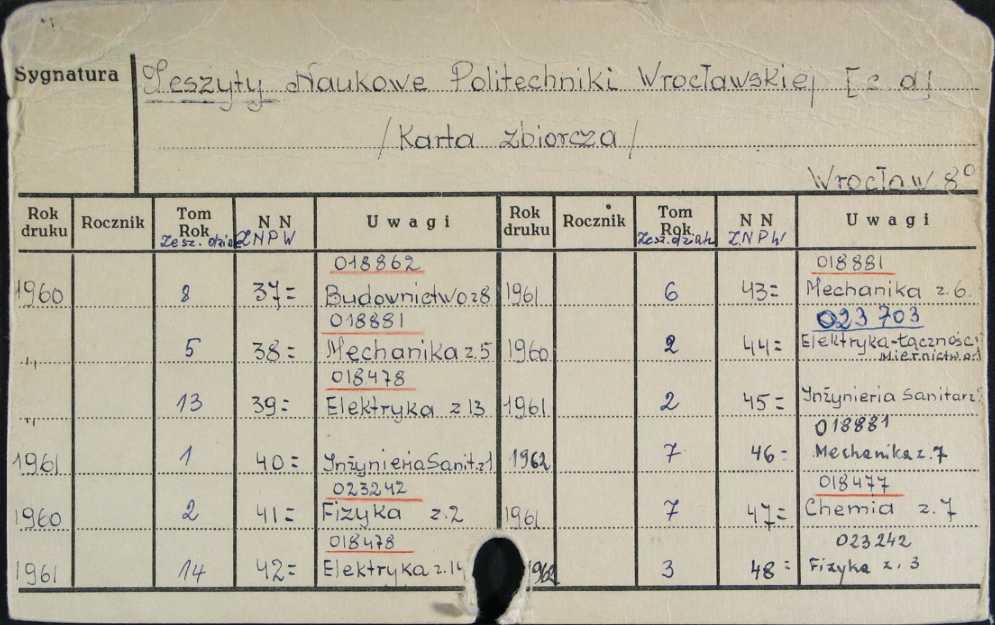 Sygnatura Zeszyty Naukowe Politechniki Wrocławskiej [c.d]
/Karta zbiorcza/
Wrocław 8°
Rok druku Rocznik Tom Rok Zesz. dział NN ZNPW Uwagi Rok druku Rocznik Tom Rok Zesz. dział NN ZNPW Uwagi
018862 018881
1960 8 37= Budownictwo z 8 1961 6 43= Mechanika z. 6.
018881 023 703
-"- 5 38= Mechanika z. 5 1960 2 44= Elektryka-Łączności
018478
-"- 13 39= Elektryka z 13 1961 2 45= Inżynieria Sanitar.
018881
1961 1 40= Inżynieria Sanit. z 1 1962 7 46= Mechanika z. 7
023242 018477
1960 2 41= Fizyka z. 2 1961 7 47= Chemia z. 7
018478 023242
1961 14 42= Elektryka z. 14 1962 3 48= Fizyka z. 3